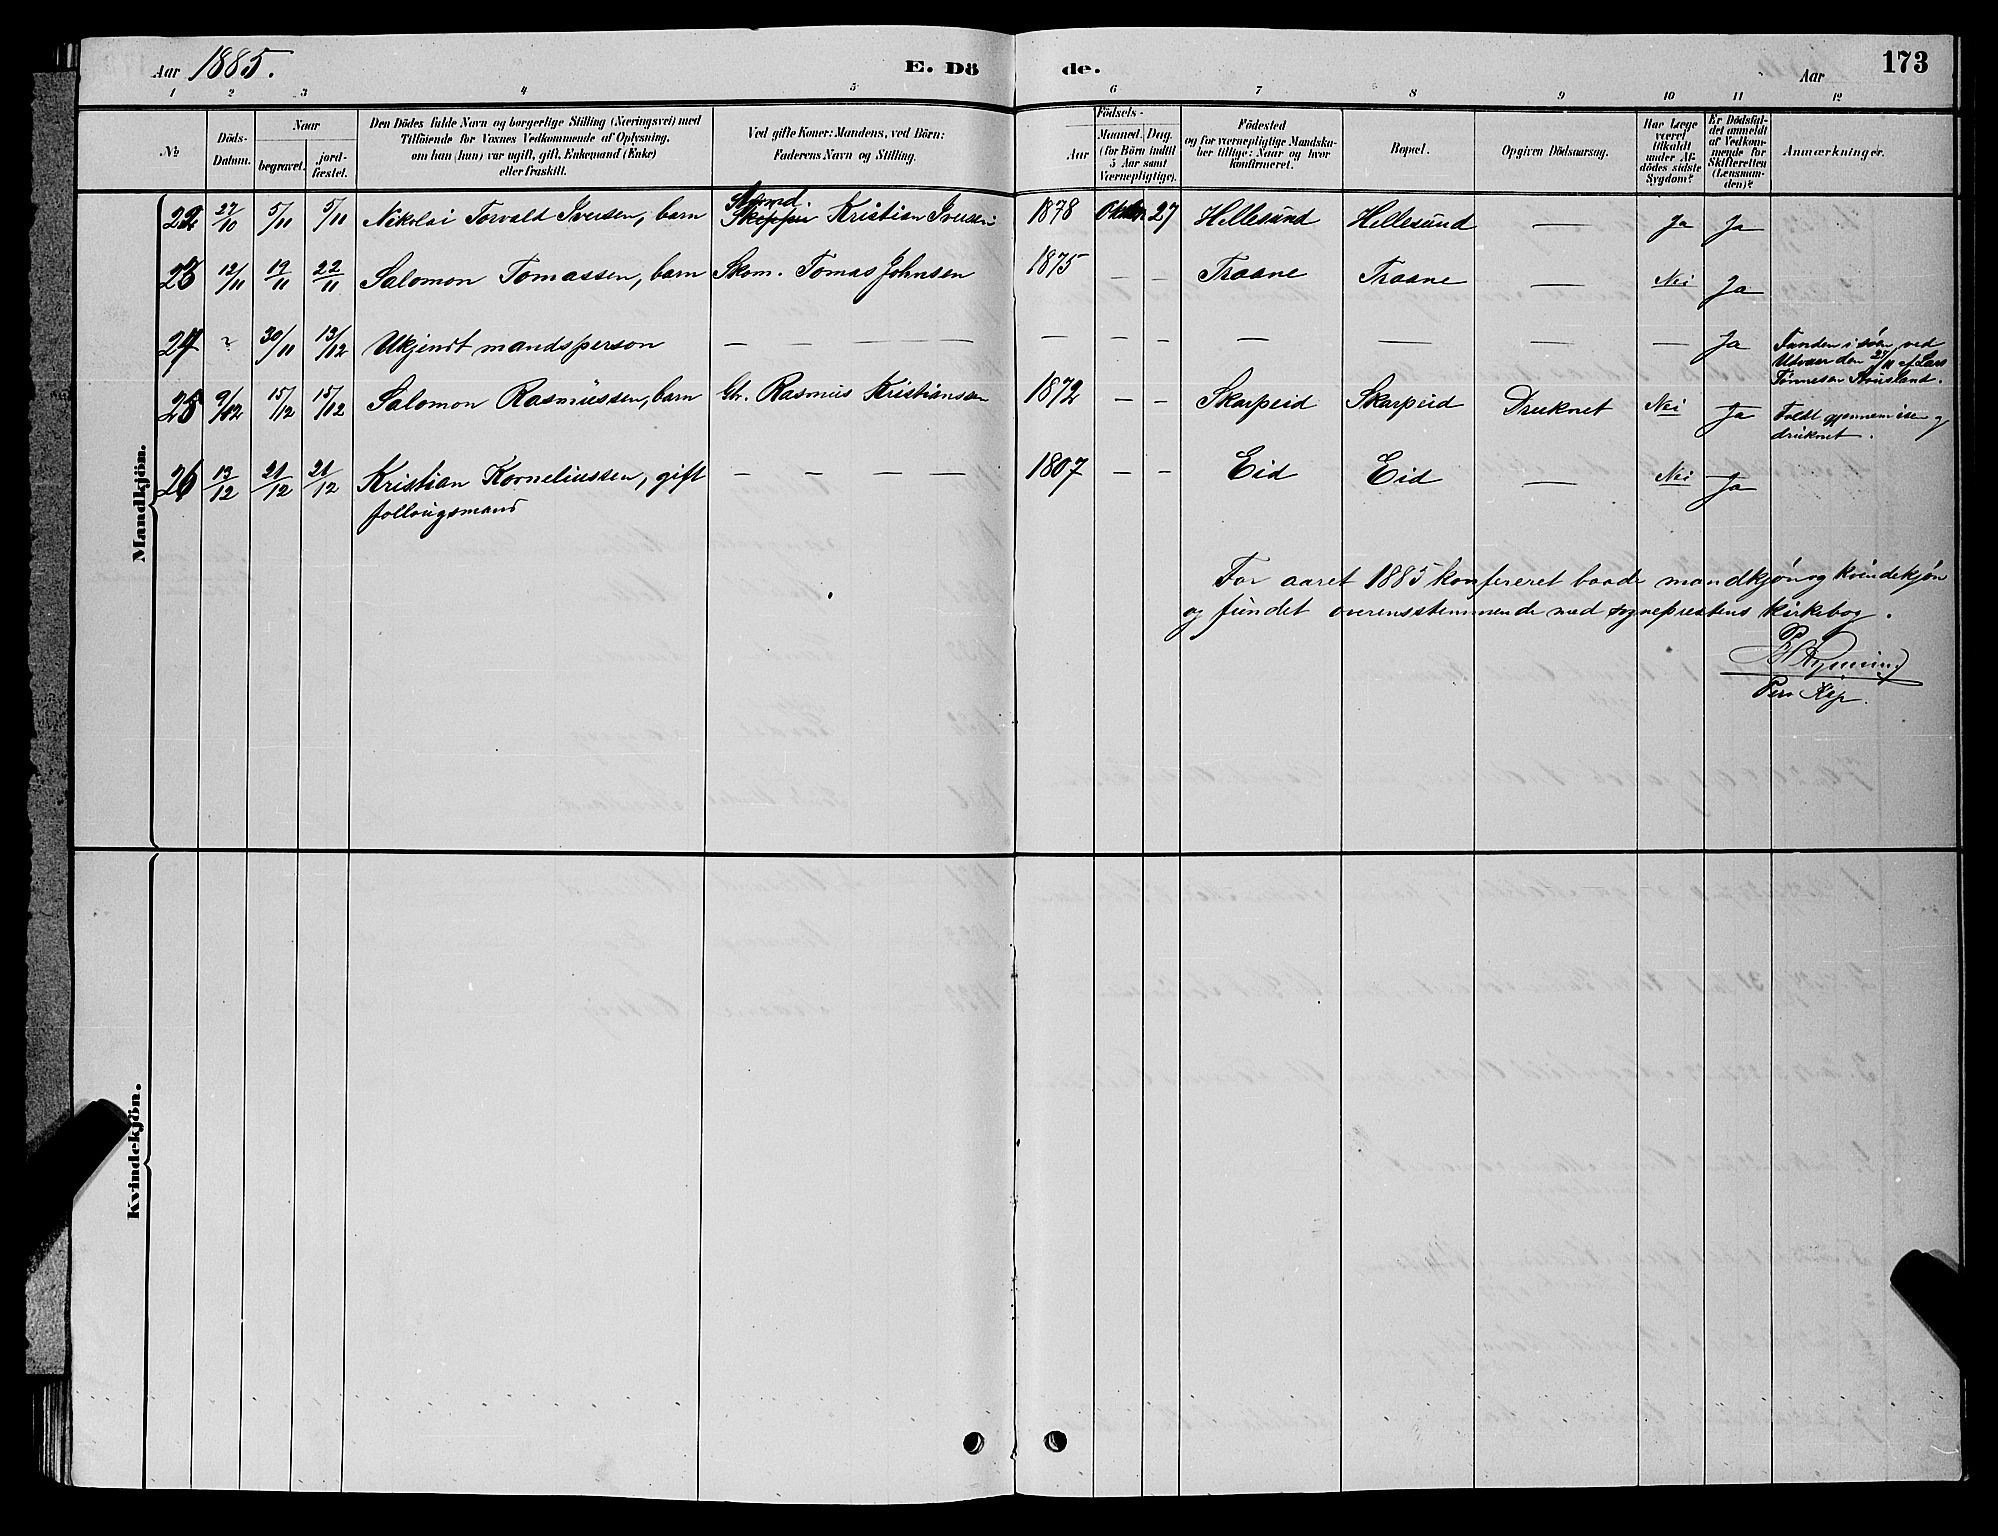 Aar 1885. E. Dö de. Aar 173
1 2 3 4 5 6 7 8 9 10 11 12
№ Döds-Datum. Naar begravet. jord-fæstet. Den Dödes fulde Navn og borgerlige Stilling (Næringsvei) med Tilföiende for Voxnes Vedkommende af Oplysning, om han (hun) var ugift, gift, Enkemand (Enke) eller fraskilt. Ved gifte Koner: Mandens, ved Börn: Faderens Navn og Stilling. Födsels- Aar Maaned. Dag. (for Börn indtil 5 Aar samt Værnepligtige). Födested og for værnepligtige Mandska-ber tillige: Naar og hvor konfirmeret. Bopæl. Opgiven Dödsaarsag. Har Læge været tilkaldt under Af-dödes sidste Sygdom? Er Dödsfal-det anmeldt af Vedkom-mende for Skifteretten (Lensman-den)? Anmærkninger.
Mandkjön.
22 27/10 5/11 5/11 Nikolai Torvald Iversen, barn Skipper Kristian Iversen 1878 27 Hellesund Hellesund — Ja Ja
23 12/11 19/11 22/11 Salomon Tomassen, barn Skom. Tomas Johnsen 1875 — — Traane Traane — Nei Ja
24 ? 30/11 13/12 Ukjendt mandsperson — — — — — — — — — — — — Ja Funden i söen ved
Udvaar den 27/11 af Lars
Tönnesen Stousland.
25 9/12 15/12 15/12 Salomon Rasmussen, barn Gbr. Rasmus Kristiansen 1872 — — Skarpeid Skarpeid Druknet Nei Ja Faldt gjennem isen og
druknet.
26 13/12 21/12 21/12 Kristian Korneliussen, gift — — — — 1807 — — Eid Eid — Nei Ja
follougsmand
For aaret 1885 konfereret baade mandkjön og kvindekjön
og fundet overensstemmende med sogneprestens kirkebog.
Pers Kap.
Kvindekjön.